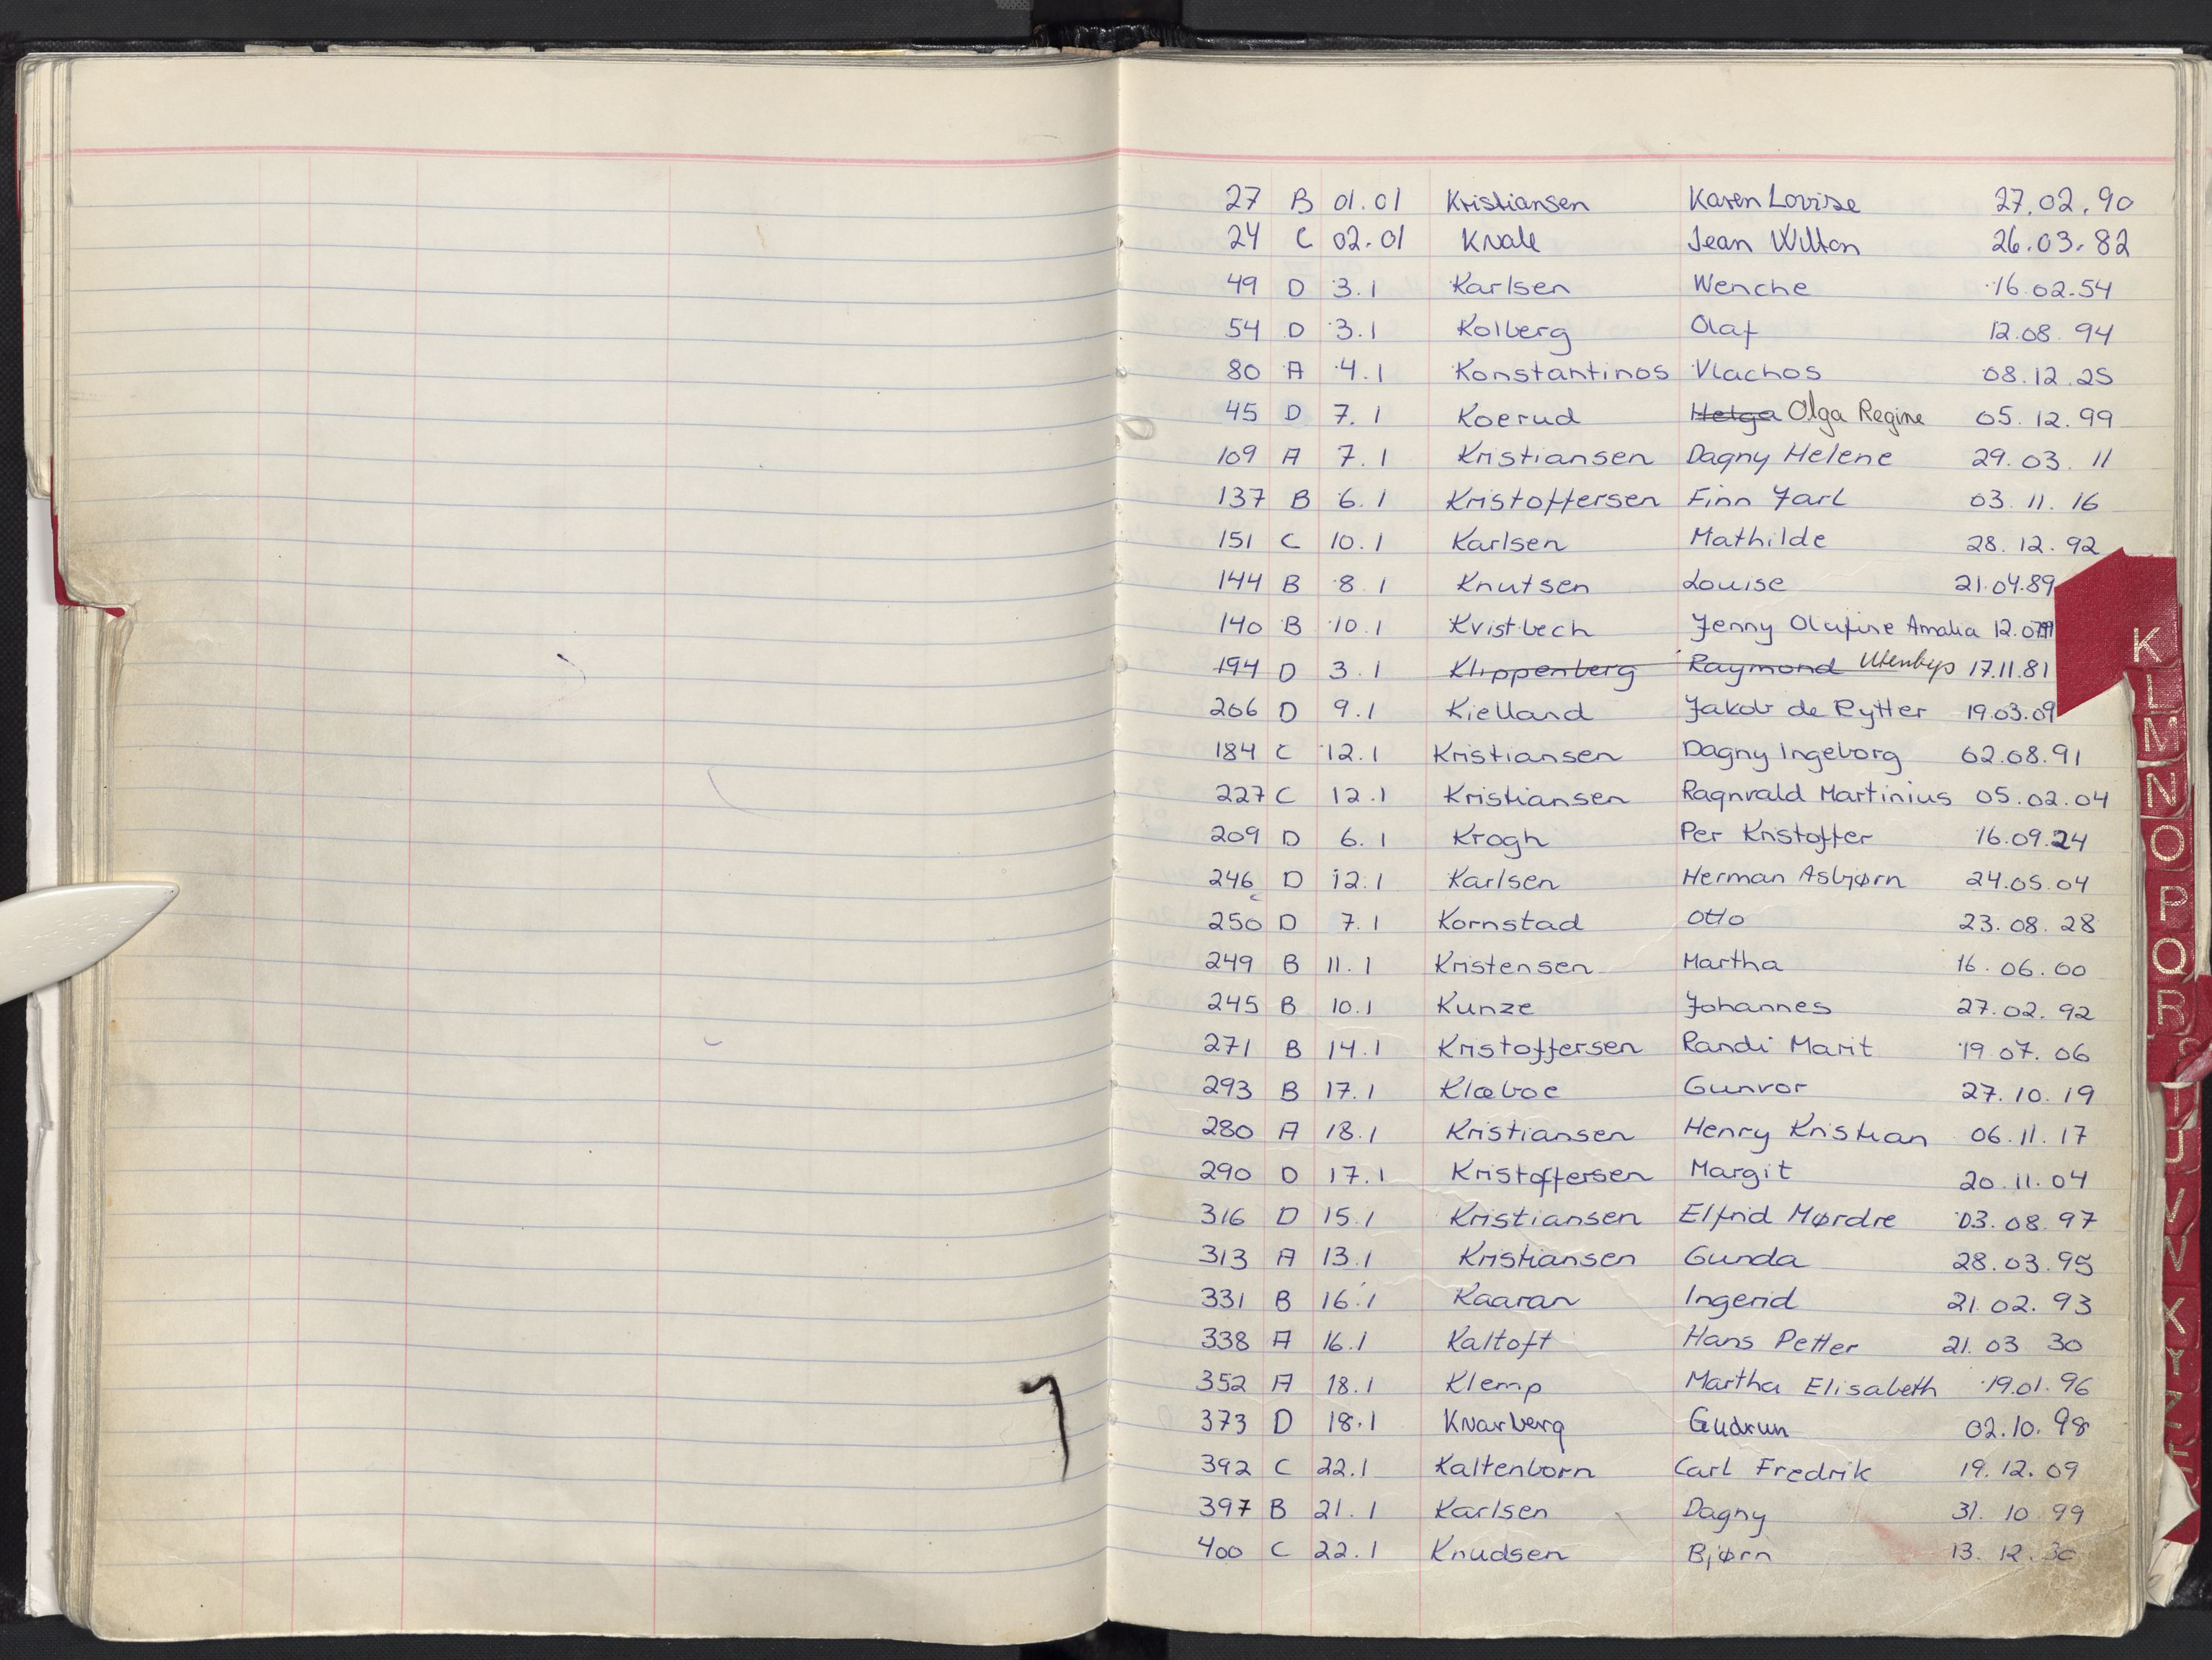 27 B 01.01 Kristiansen Karen Lovise 27.02.90
24 C 02.01 Kvale Jean Wilton 26.03.82
49 D 3.1 Karlsen Wenche 16.02.54
54 D 3.1 Kolberg Olaf 12.08.94
80 A 4.1 Konstantinos Vlachos 08.12.25
45 D 7.1 Koerud Helga Olga Regine 05.12.99
109 A 7.1 Kristiansen Dagny Helene 29.03.11
137 B 6.1 Kristoffersen Finn Jarl 03.11.16
151 C 10.1 Karlsen Mathilde 28.12.92
144 B 8.1 Knutsen Louise 21.04.89
140 B 10.1 Kvistbech Jenny Olufine Amalia
194 D 3.1 Klippenberg Raymond Utenbys 17.11.81
206 D 9.1 Kielland Jakob de Rytter 19.03.09
184 C 12.1 Kristiansen Dagny Ingeborg 02.08.91
227 C 12.1 Kristiansen Ragnvald Martinius 05.02.04
209 D 6.1 Krogh Per Kristoffer 16.09.24
246 D 12.1 Karlsen Herman Asbjørn 24.05.04
250 D 7.1 Kornstad Otto 23.08.28
249 B 11.1 Kristensen Martha 16.06.00
245 B 10.1 Kunze Johannes 27.02.92
271 B 14.1 Kristoffersen Randi Marit 19.07.06
293 B 17.1 Klæboe Gunvor 27.10.19
280 A 18.1 Kristiansen Henry Kristian 06.11.17
290 D 17.1 Kristoffersen Margit 20.11.04
316 D 15.1 Kristiansen Elfrid Mørdre 03.08.97
313 A 13.1 Kristiansen Gunda 28.03.95
331 B 16.1 Kaaran Ingerid 21.02.93
338 A 16.1 Kaltoft Hans Petter 21.03 30
352 A 18.1 Klemp Martha Elisabeth 19.01.96
373 D 18.1 Knarberg Gudrun 02.10.98
392 C 22.1 Kaltenborn Carl Fredrik 19.12.09
397 B 21.1 Karlsen Dagny 31.10.99
400 C 22.1 Knudsen Bjørn 13.12.30
K
L
M
N
O
P
Q
R
T
U
V
X
Y